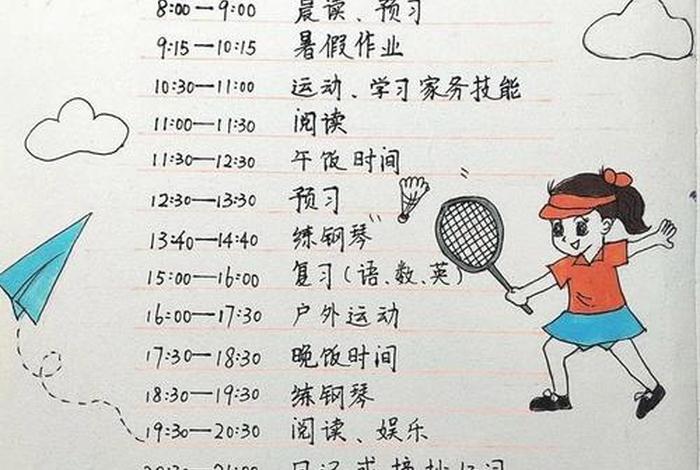 8:00—9:00 晨读、预习
9:15—10:15 暑假作业
10:30—11:00 运动、学习家务技能
11:00—11:30 阅读
11:30—12:30 午饭时间
12:30—13:30 预习
13:40—14:40 练钢琴
15:00—16:00 复习(语、数、英)
16:00—17:30 户外运动
17:30—18:30 晚饭时间
18:30—19:30 练钢琴
19:30—20:30 阅读、娱乐